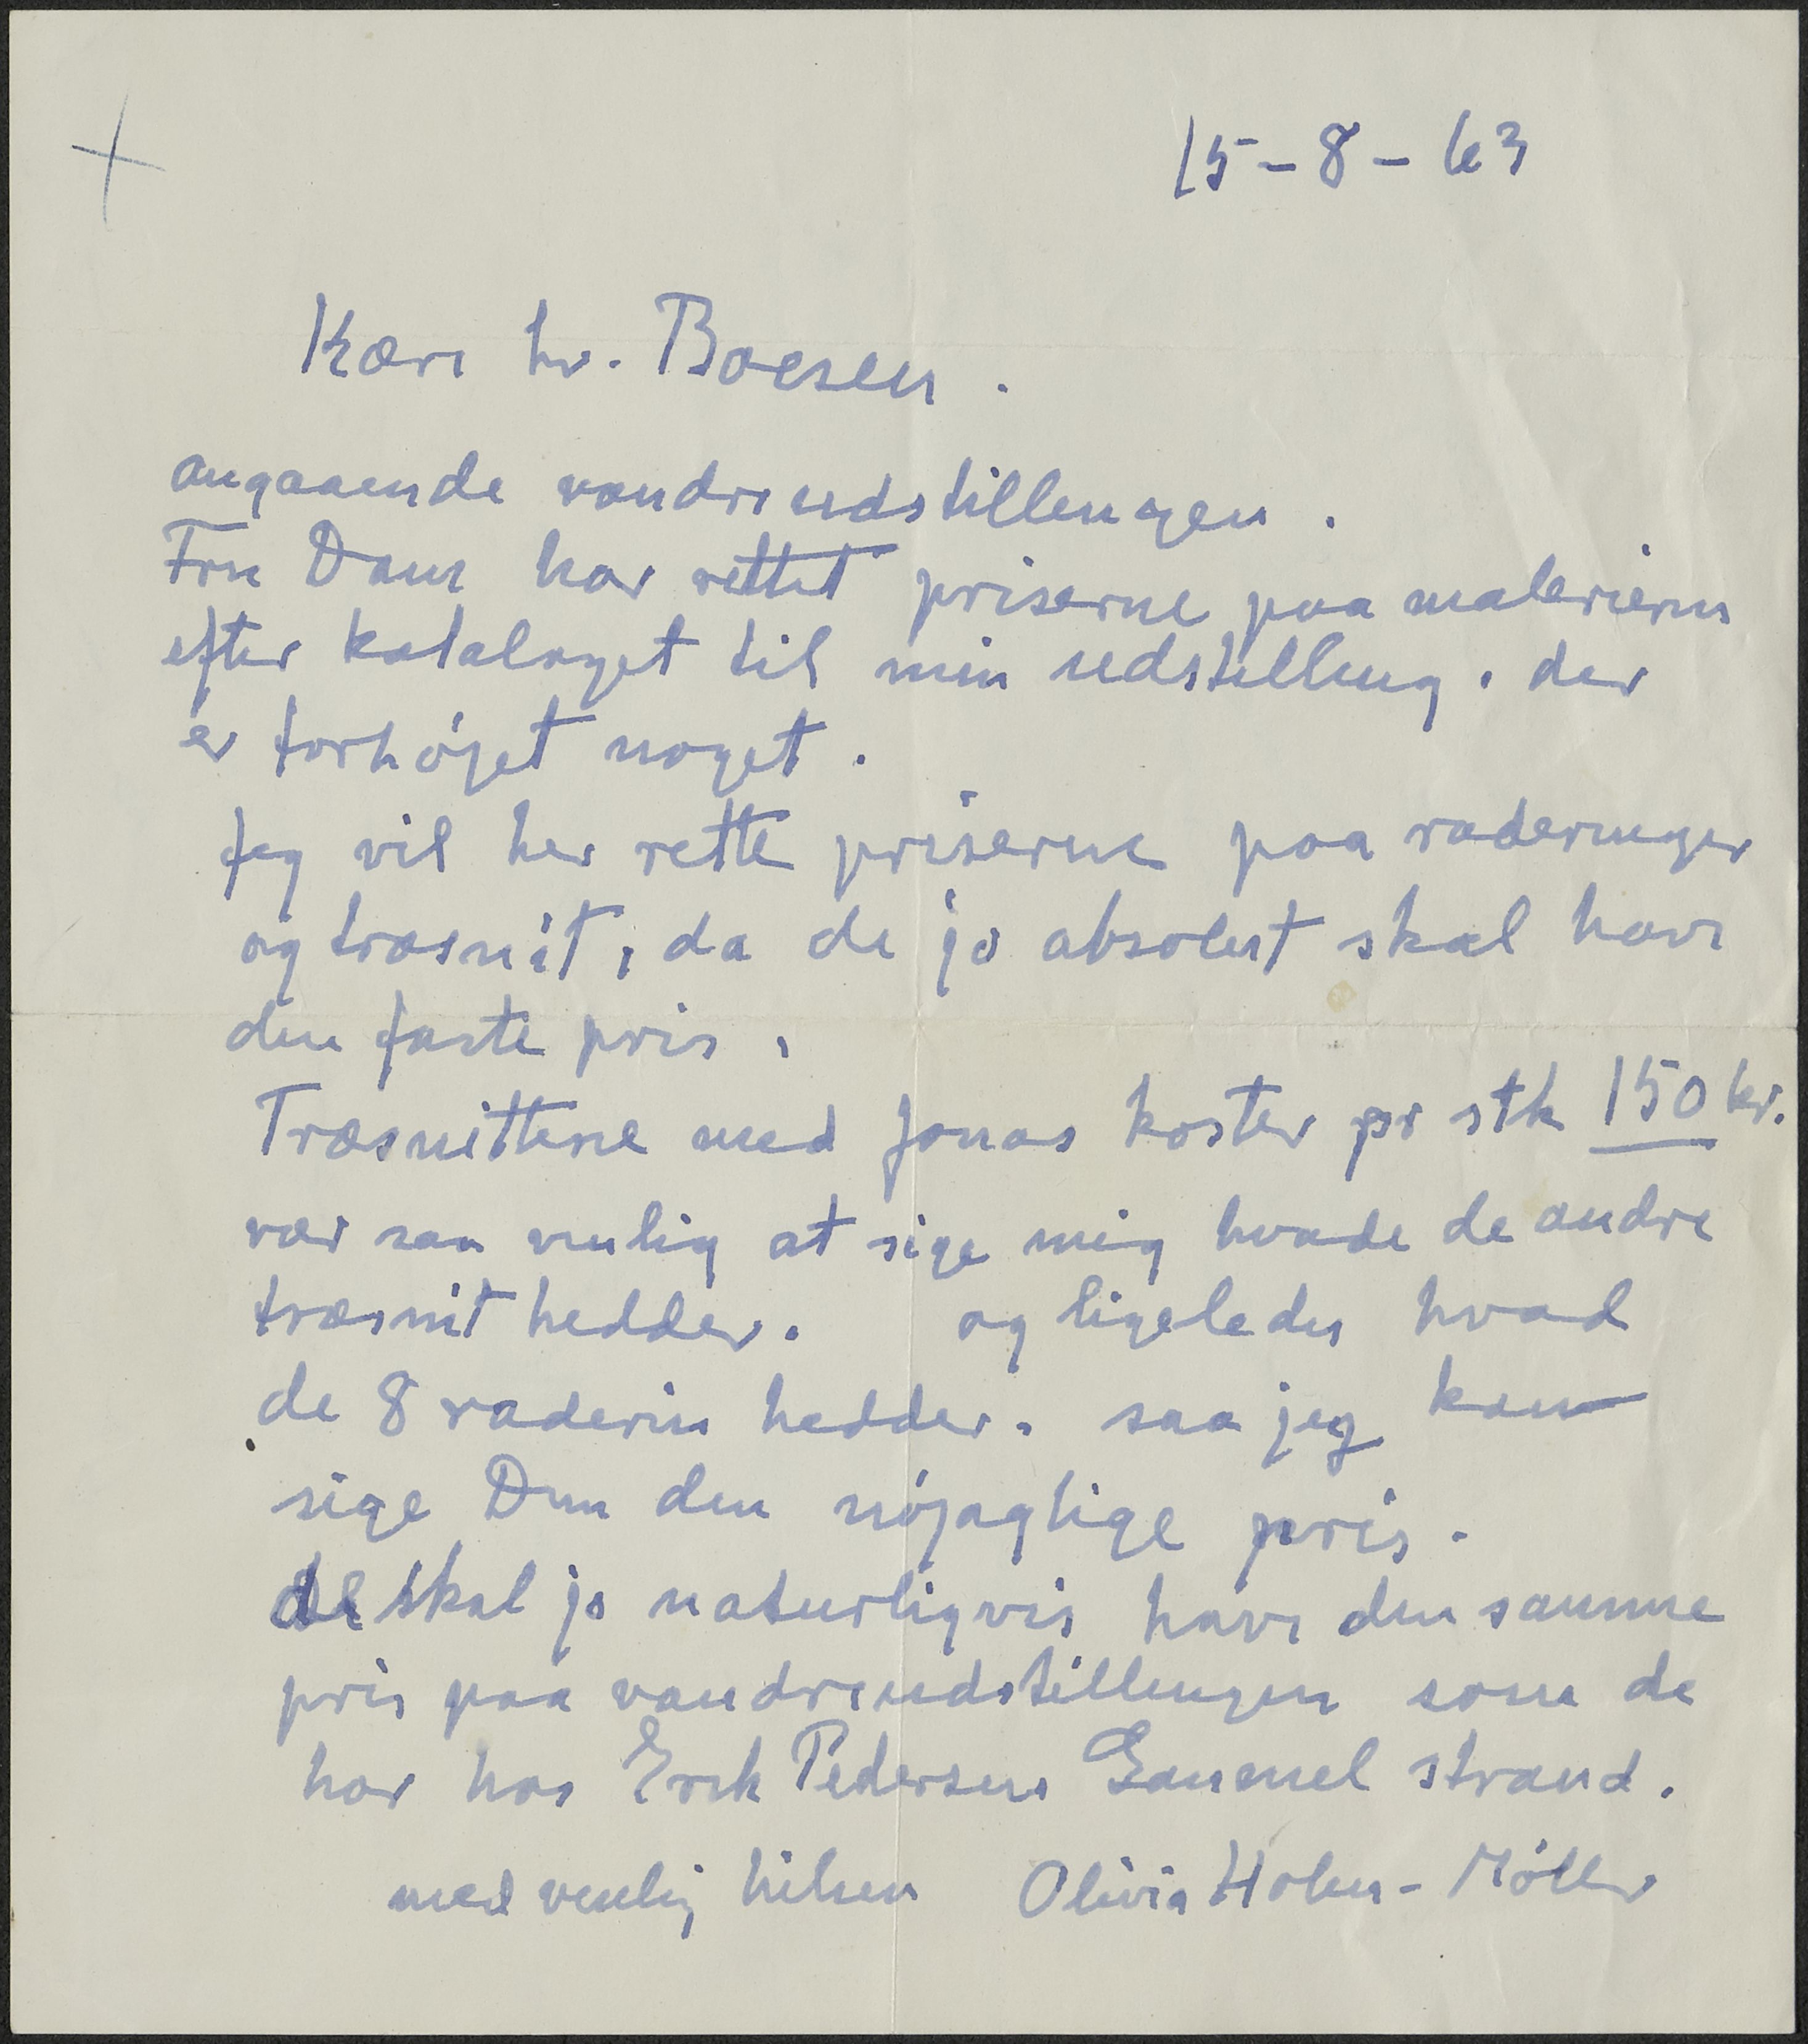 15-8-63
Kære hr. Boesen.
angaaende vandreudstillengen.
Fru Dam har rettet priserne paa malerierne
efter kataloget til min udstilling. der
er forhøjet noget.
Jeg vil her rette priserne paa raderinger
og træsnit, da de jo absolut skal have
den faste pris.
Træsnittene med Jonas koster pr stk 150 kr.
vær saa venlig at sige mig hvade de andre
træsnit hedder. og ligeledes hvad
de 8 raderin hedder. saa jeg kan
sige Dem den nøjagtige pris.
de skal jo naturligvis have den samme
pris paa vandreudstillingen som de
har hos Erik Pedersens Gammel strand.
med venlig hilsen Olivia Holm-Møller